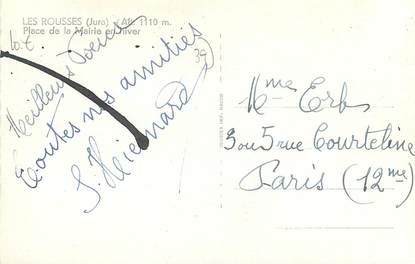 LES ROUSSES (Jura) Alt. 1110 m.
Place de la Mairie en hiver
Meilleurs Voeux
Toutes nos amitiés
Mme Erb
3 ou 5 rue Courteline
Paris (12me)